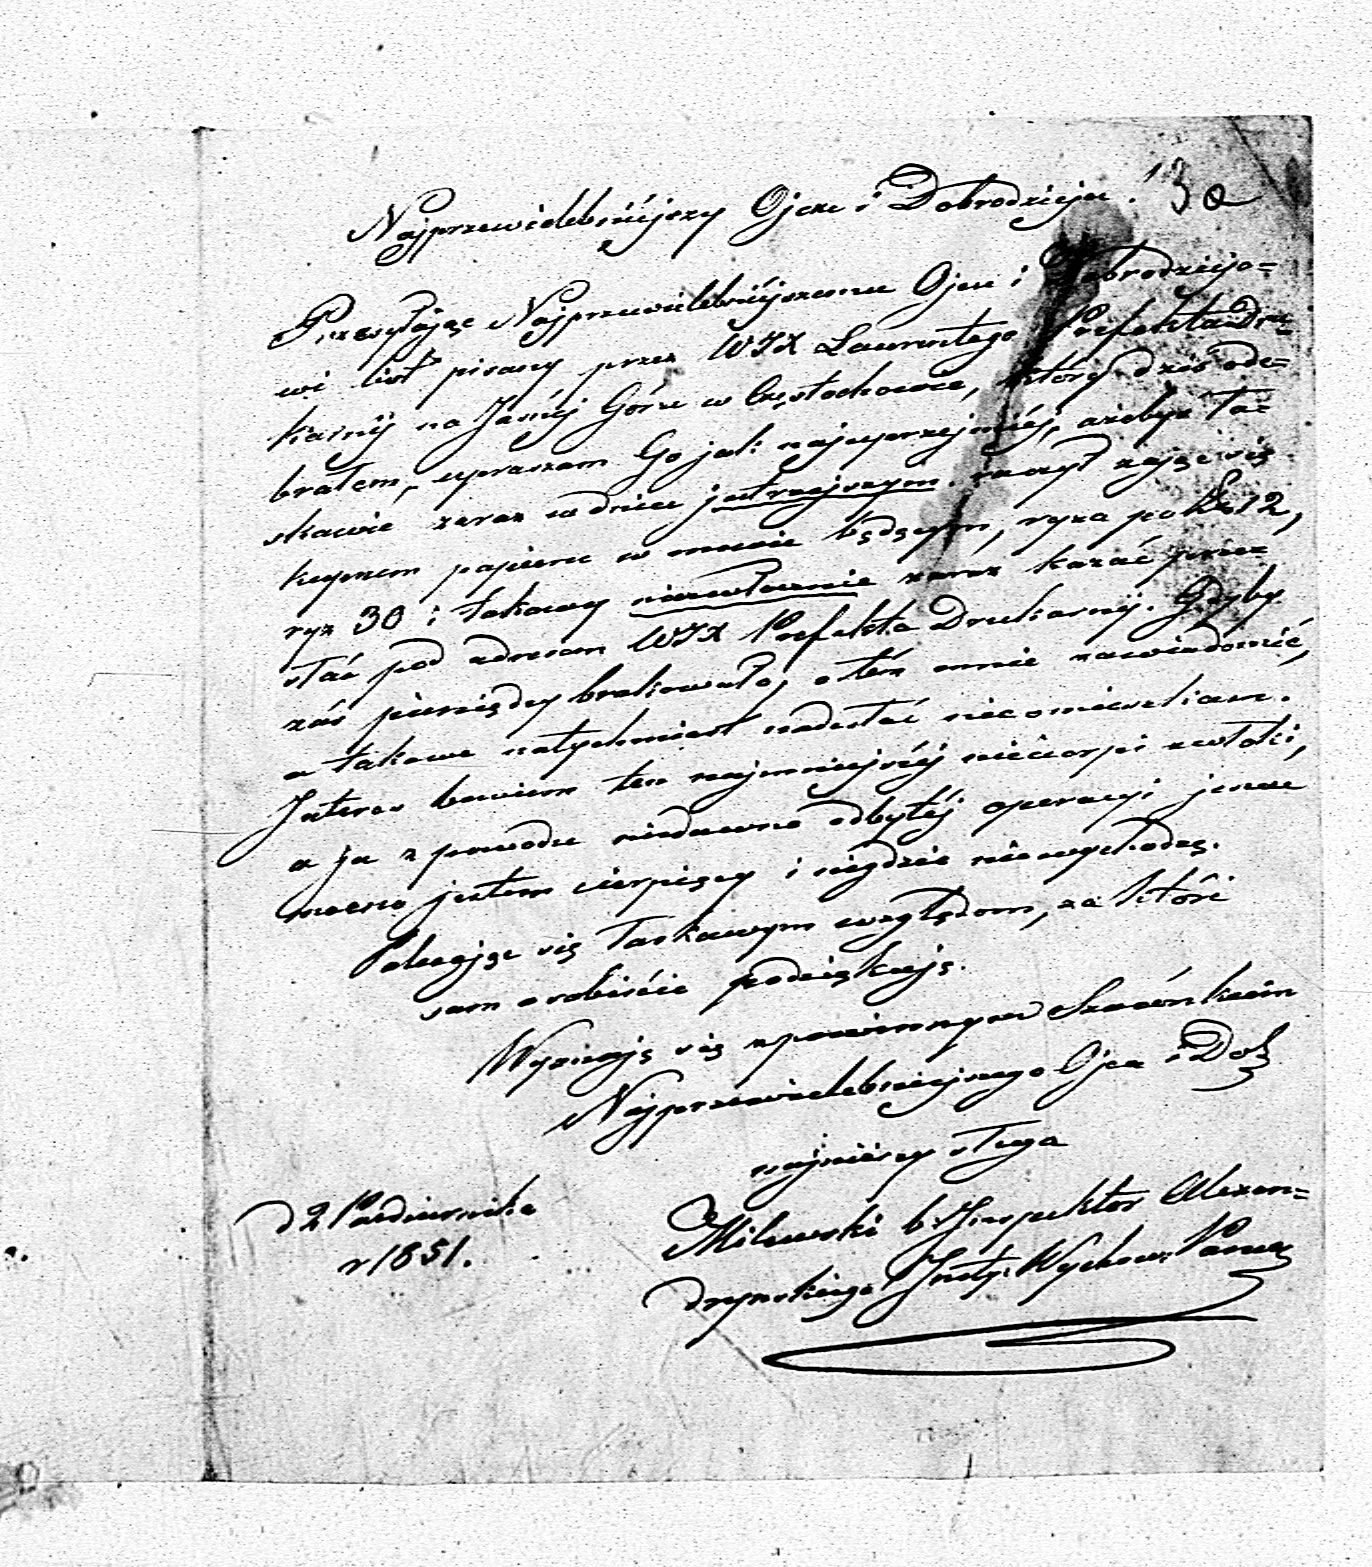 Najprzewielebniéjszy Ojcze i Dobrodzieju!
30
Przesyłając Najprzewielebniéjszemu Ojcu i Dobrodziejo=
wi list pisany przez WJX Prefekta Dru=
karnij na Jasnéj Górze w Częstochowie, który dziś ode=
brałem, upraszam Go jak najuprzejmiéj, ażebyś ła=
skawie zaraz w dniu jutrzejszym raczył zająć się
kupnem papieru w mowie będącym, ryza po 12,
ryz 30 i takowy niezwłocznie zaraz kazać prze=
słać pod adresem WJX Prefekta Drukarnij. Gdyby
zaś pieniędzy brakowało, o tém mnie zawiadomić,
a takowe natychmiast nadesłać nieomieszkam.
Interes bowiem ten najmniejszéj niecierpi zwłoki,
a ja z powodu niedawno odbytéj operacyi jeszcze
mocno jestem cierpiący i nigdzie niewychodzę.
Polecając się łaskawym względom, za które
sam osobiście podziękuję.
Wypisuję się z powinnym Szacunkiem
Najprzewielebniejszego Ojca i Dob
najniższy sługa
Milewski b. Inspektor Alexan=
dryńskiego Insty: Wychow: Panien
d 2 Października
r 1851.